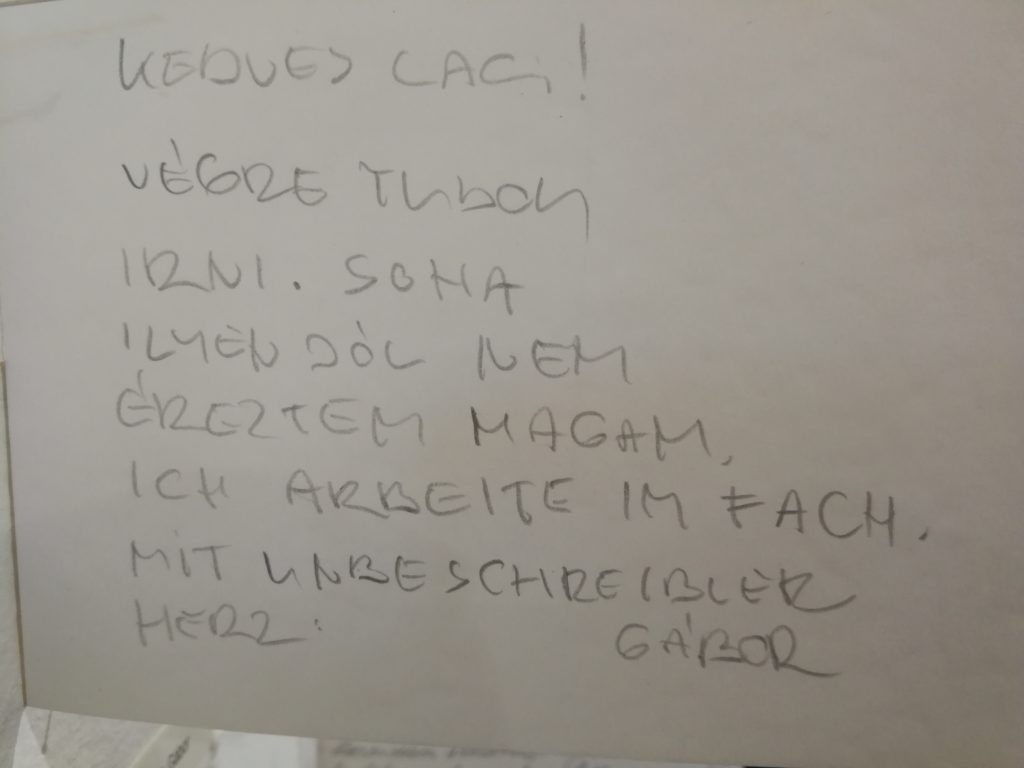 KEDVES LACI!
VÉGRE TUDOM
IRNI. SOHA
ILYEN JÓL NEM
ÉREZTEM MAGAM.
ICH ARBEITE IM FACH.
MIT UNBESCHREIBLER
HERZ.
GÁBOR